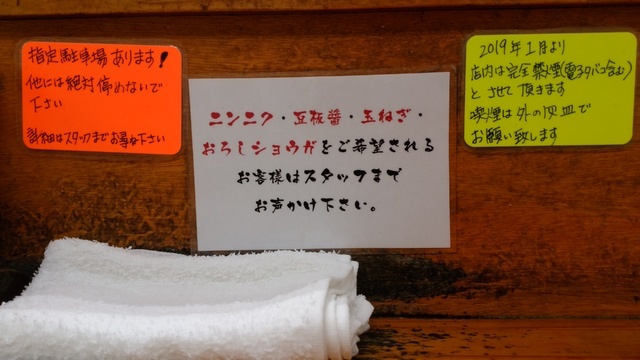 指定駐車場あります!
他には絶対停めないで
下さい
詳細はスタッフまでお尋ね下さい
ニンニク・豆板醤・玉ねぎ・
おろしショウガをご希望される
お客様はスタッフまで
お声かけ下さい。
2019年1月より
店内は完全禁煙(電子タバコ含む)
とさせて頂きます
喫煙は外の灰皿で
お願い致します